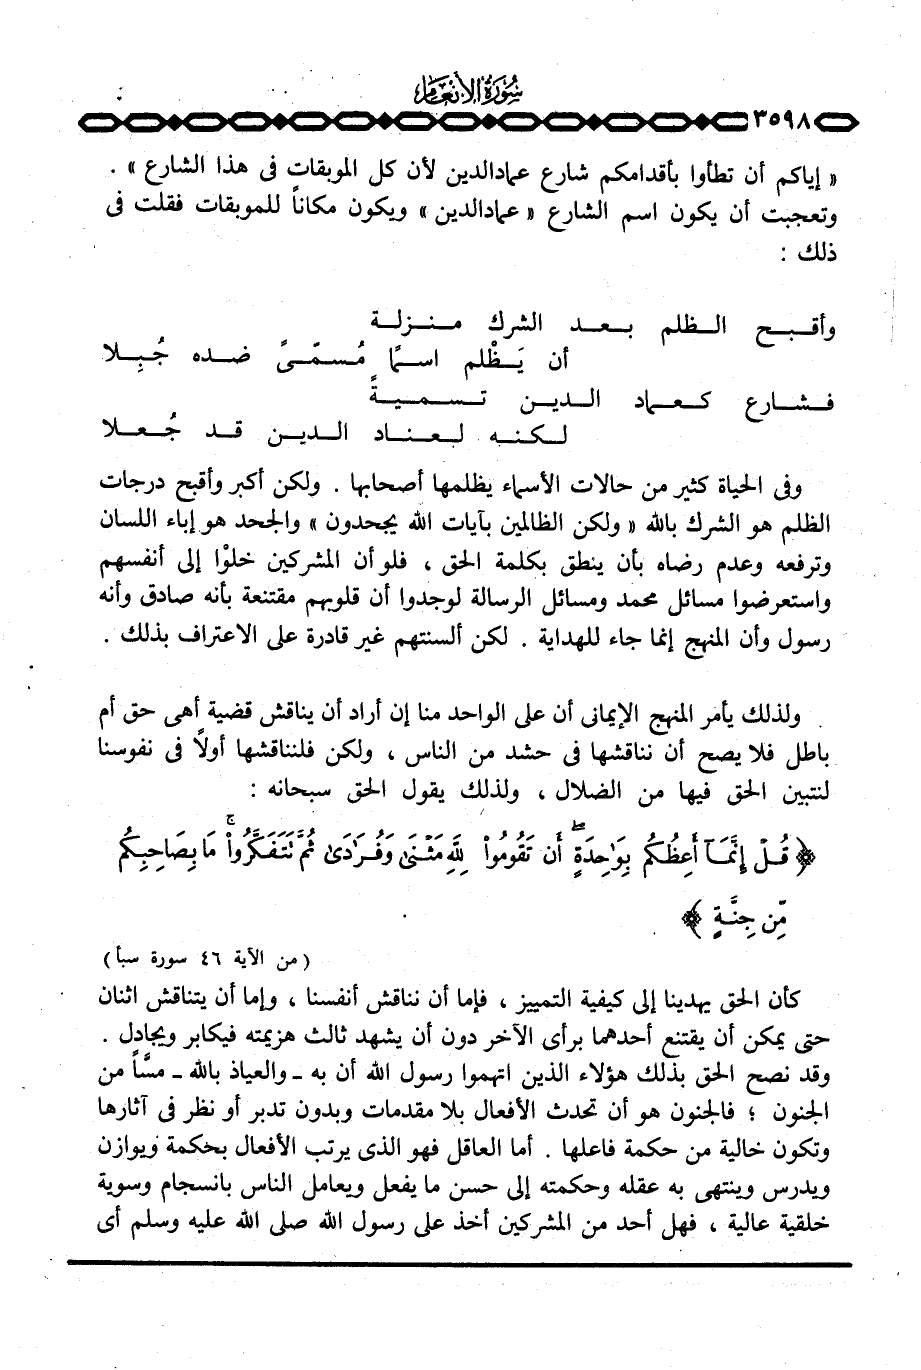 سورة الأنعام
٣٥٩٨
« إياكم أن تطأوا بأقدامكم شارع عمادالدين لأن كل الموبقات فى هذا الشارع » .
وتعجبت أن يكون اسم الشارع « عمادالدين » ويكون مكاناً للموبقات فقلت فى
ذلك :
وأقبح الظلم بعد الشرك منزلة
أن يَظْلم اسمًا مُسمّىً ضده جُبِلا
فشارع كعماد الدين تسميةً
لكنه لعناد الدين قد جُعلا
وفى الحياة كثير من حالات الأسماء يظلمها أصحابها . ولكن أكبر وأقبح درجات
الظلم هو الشرك بالله « ولكن الظالمين بآيات الله يجحدون » والجحد هو إباء اللسان
وترفعه وعدم رضاه بأن ينطق بكلمة الحق ، فلو أن المشركين خلوْا إلى أنفسهم
واستعرضوا مسائل محمد ومسائل الرسالة لوجدوا أن قلوبهم مقتنعة بأنه صادق وأنه
رسول وأن المنهج إنما جاء للهداية . لكن ألسنتهم غير قادرة على الاعتراف بذلك .
ولذلك يأمر المنهج الإيمانى أن على الواحد منا إن أراد أن يناقش قضية أهى حق أم
باطل فلا يصح أن نناقشها فى حشد من الناس ، ولكن فلنناقشها أولاً فى نفوسنا
لنتبين الحق فيها من الضلال ، ولذلك يقول الحق سبحانه :
﴿ قُلْ إِنَّمَآ أَعِظُكُم بِوَٰحِدَةٍ ۖ أَن تَقُومُوا۟ لِلَّهِ مَثْنَىٰ وَفُرَٰدَىٰ ثُمَّ تَتَفَكَّرُوا۟ ۚ مَا بِصَاحِبِكُم
مِّن جِنَّةٍ ﴾
( من الآية ٤٦ سورة سبأ )
كأن الحق يهدينا إلى كيفية التمييز ، فإما أن نناقش أنفسنا ، وإما أن يتناقش اثنان
حتى يمكن أن يقتنع أحدهما برأى الآخر دون أن يشهد ثالث هزيمته فيكابر ويجادل .
وقد نصح الحق بذلك هؤلاء الذين اتهموا رسول الله أن به - والعياذ بالله - مسًّا من
الجنون ؛ فالجنون هو أن تحدث الأفعال بلا مقدمات وبدون تدبر أو نظر فى آثارها
وتكون خالية من حكمة فاعلها . أما العاقل فهو الذى يرتب الأفعال بحكمة ويوازن
ويدرس وينتهى به عقله وحكمته إلى حسن ما يفعل ويعامل الناس بانسجام وسوية
خلقية عالية ، فهل أحد من المشركين أخذ على رسول الله صلى الله عليه وسلم أى